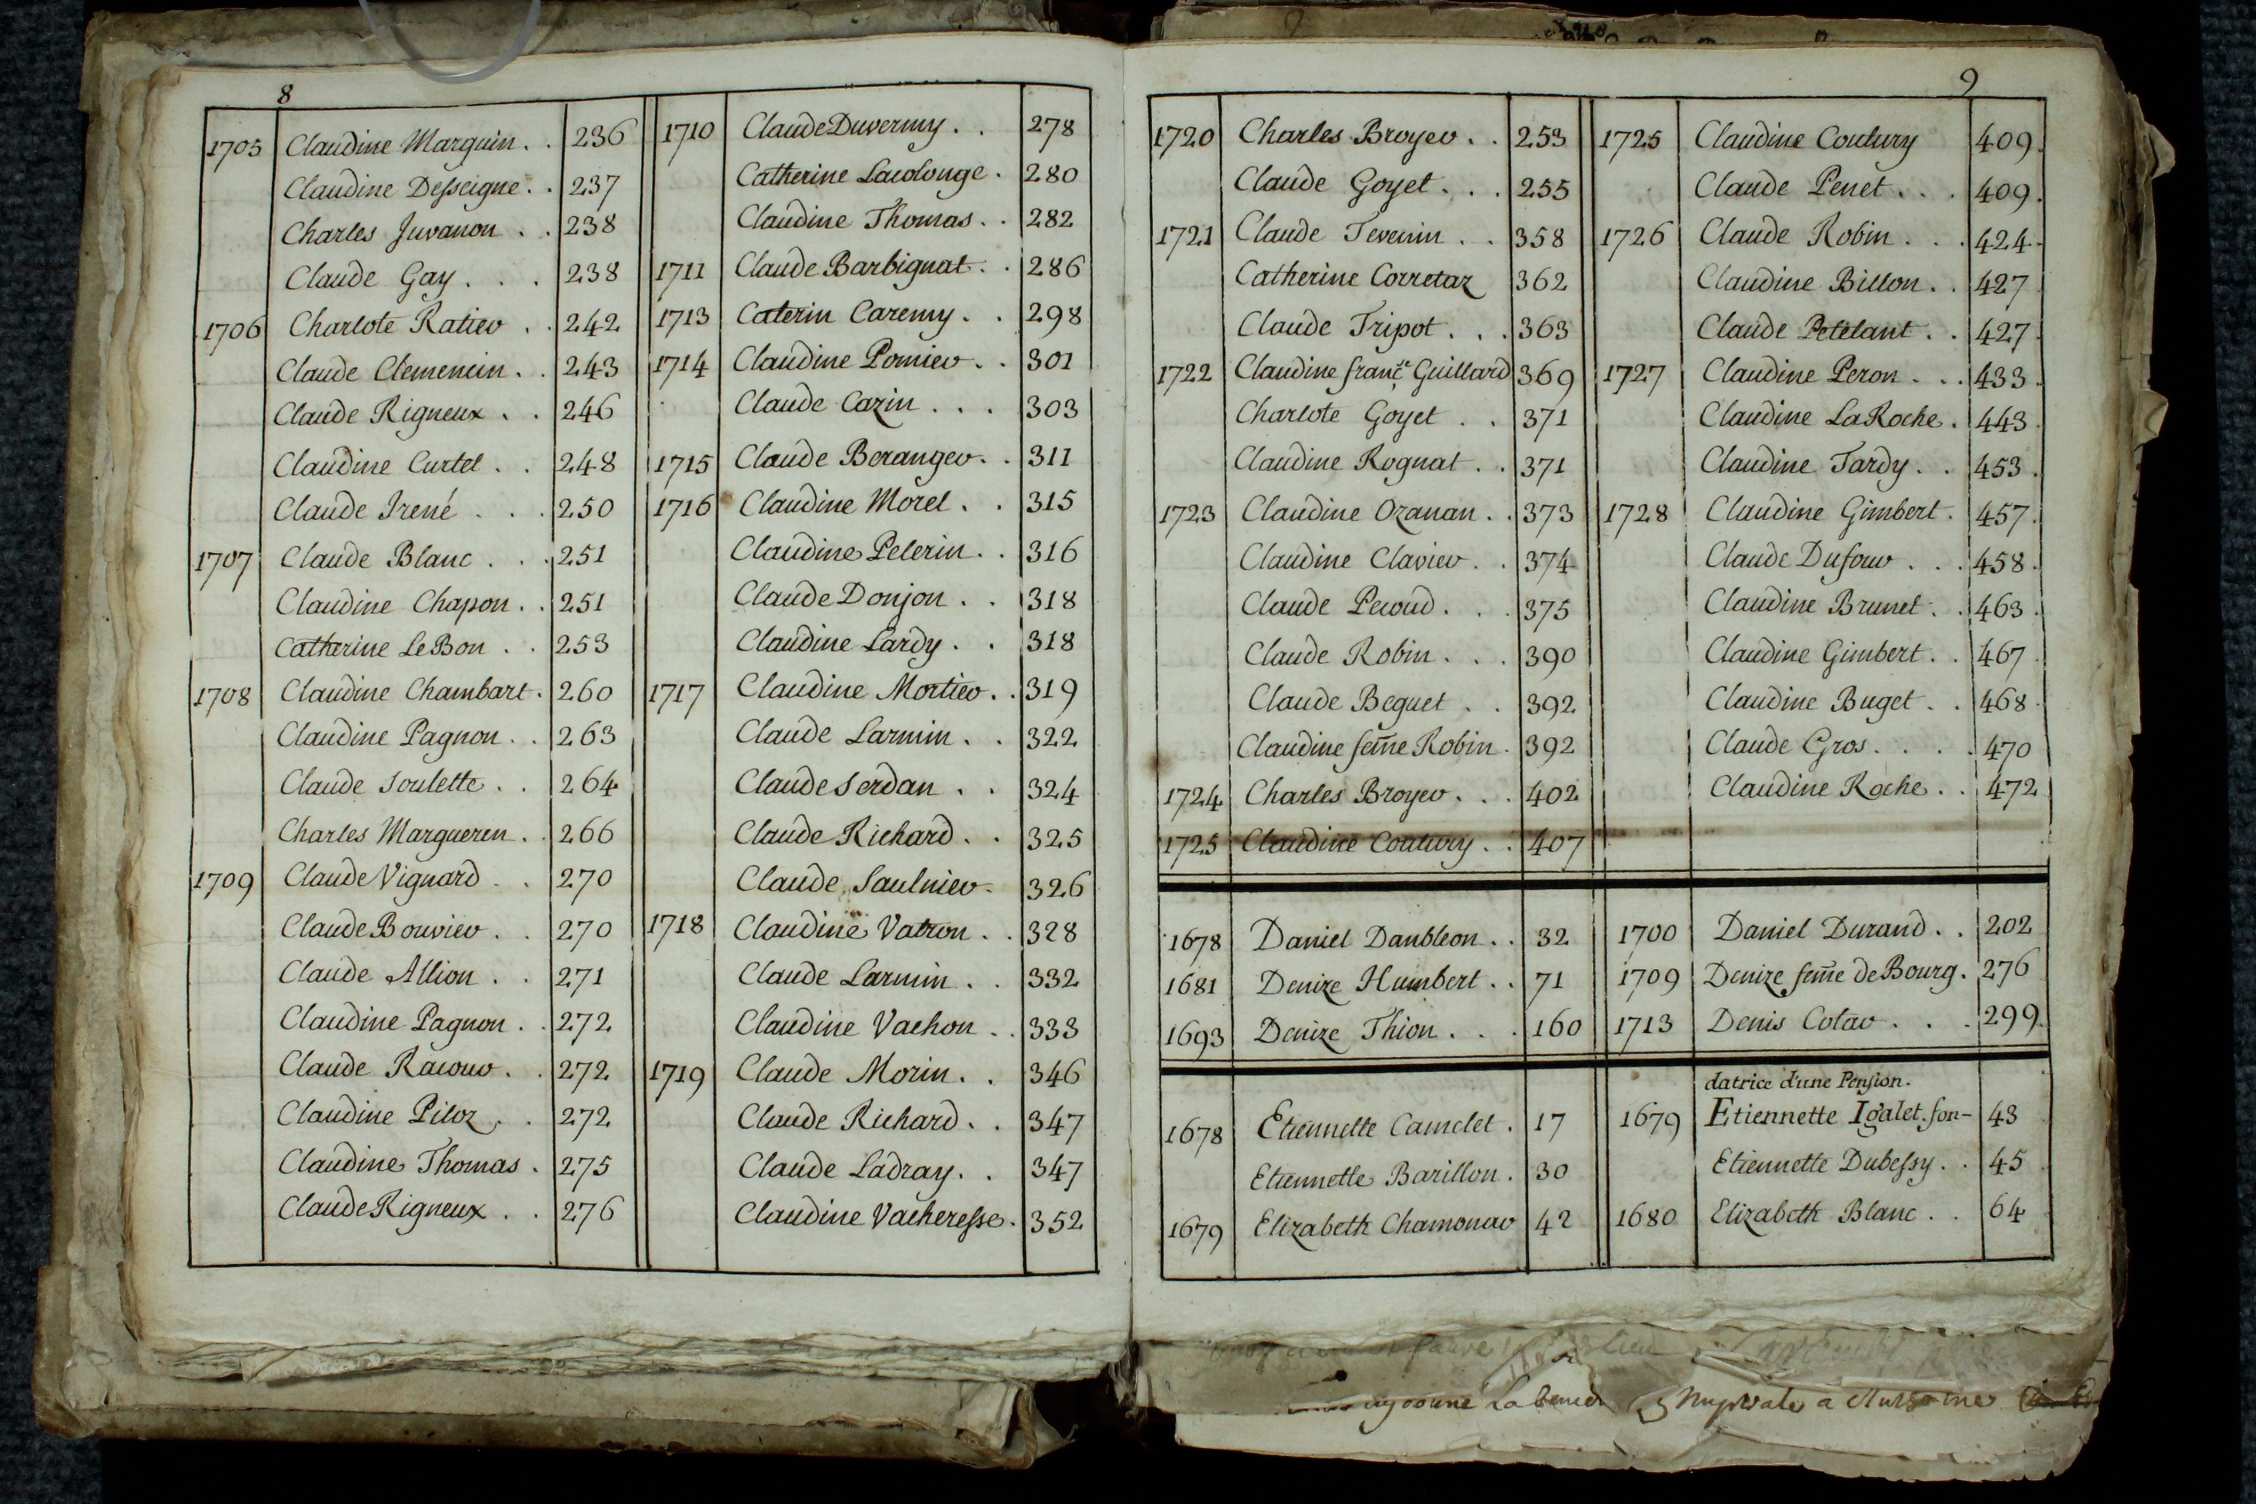 8
1705 Claudine Marguin . . 236
Claudine Desseigne . . 237
Charles Juvanon . . 238
Claude Gay . . . 238
1706 Charlote Ratier . . 242
Claude Clemencin . . 243
Claude Rigneux . . 246
Claudine Curtel . . 248
Claude Irené . . . 250
1707 Claude Blanc . . . 251
Claudine Chapon . . 251
Catherine Le Bon . . 253
1708 Claudine Chambart . 260
Claudine Pagnon . . 263
Claude Soulette . . 264
Charles Margueren . . 266
1709 Claude Vignard . . 270
Claude Bouvier . . 270
Claude Allion . . 271
Claudine Pagnon . . 272
Claude Racour . . 272
Claudine Piloz . . 272
Claudine Thomas . 275
Claude Rigneux . . 276
1710 Claude Duvermy . . 278
Catherine Lacolonge . 280
Claudine Thomas . . 282
1711 Claude Barbignat . . 286
1713 Caterin Caremy . . 298
1714 Claudine Pomier . . 301
Claude Cazin . . . 303
1715 Claude Beranger . . 311
1716 Claudine Morel . . 315
Claudine Pelerin . . 316
Claude Donjon . . 318
Claudine Lardy . . 318
1717 Claudine Mortier . . 319
Claude Larmin . . 322
Claude Serdan . . 324
Claude Richard . . 325
Claude Saulnier . 326
1718 Claudine Vatron . . 328
Claude Larmin . . 332
Claudine Vachon . . 333
1719 Claude Morin . . 346
Claude Richard . . 347
Claude Ladray . . 347
Claudine Vacheresse . 352
9
1720 Charles Broyer . . 253
Claude Goyet . . . 255
1721 Claude Tevenin . . 358
Catherine Corretaz 362
Claude Tripot . . . 363
1722 Claudine franç.e Guillard 369
Charlote Goyet . . 371
Claudine Rognat . . 371
1723 Claudine Ozanan . . 373
Claudine Clavier . . 374
Claude Pecoud . . . 375
Claude Robin . . . 390
Claude Beguet . . 392
Claudine fem̄e Robin . 392
1724 Charles Broyer . . . 402
1725 Claudine Coutury . . 407
1725 Claudine Coutury 409.
Claude Penet . . . 409.
1726 Claude Robin . . . 424.
Claudine Billon . . 427
Claude Petelant . . 427.
1727 Claudine Peron . . . 433.
Claudine La Roche . 443.
Claudine Tardy . . 453.
1728 Claudine Gimbert . 457.
Claude Dufour . . . 458.
Claudine Brunet . . 463.
Claudine Gimbert . . 467.
Claudine Buget . . 468.
Claude Gros . . . . 470
Claudine Roche . . 472
1678 Daniel Danbleon . . 32
1681 Denize Humbert . . 71
1693 Denize Thion . . . 160
1700 Daniel Durand . . 202
1709 Denize fem̄e de Bourg . 276
1713 Denis Colar . . . 299.
1678 Etiennette Camelet . 17
Etiennette Barillon . 30
1679 Elizabeth Chamonar 42
datrice d'une Pension.
1679 Etiennette Igalet. fon- 43
Etiennette Dubessy . . 45
1680 Elizabeth Blanc . . 64